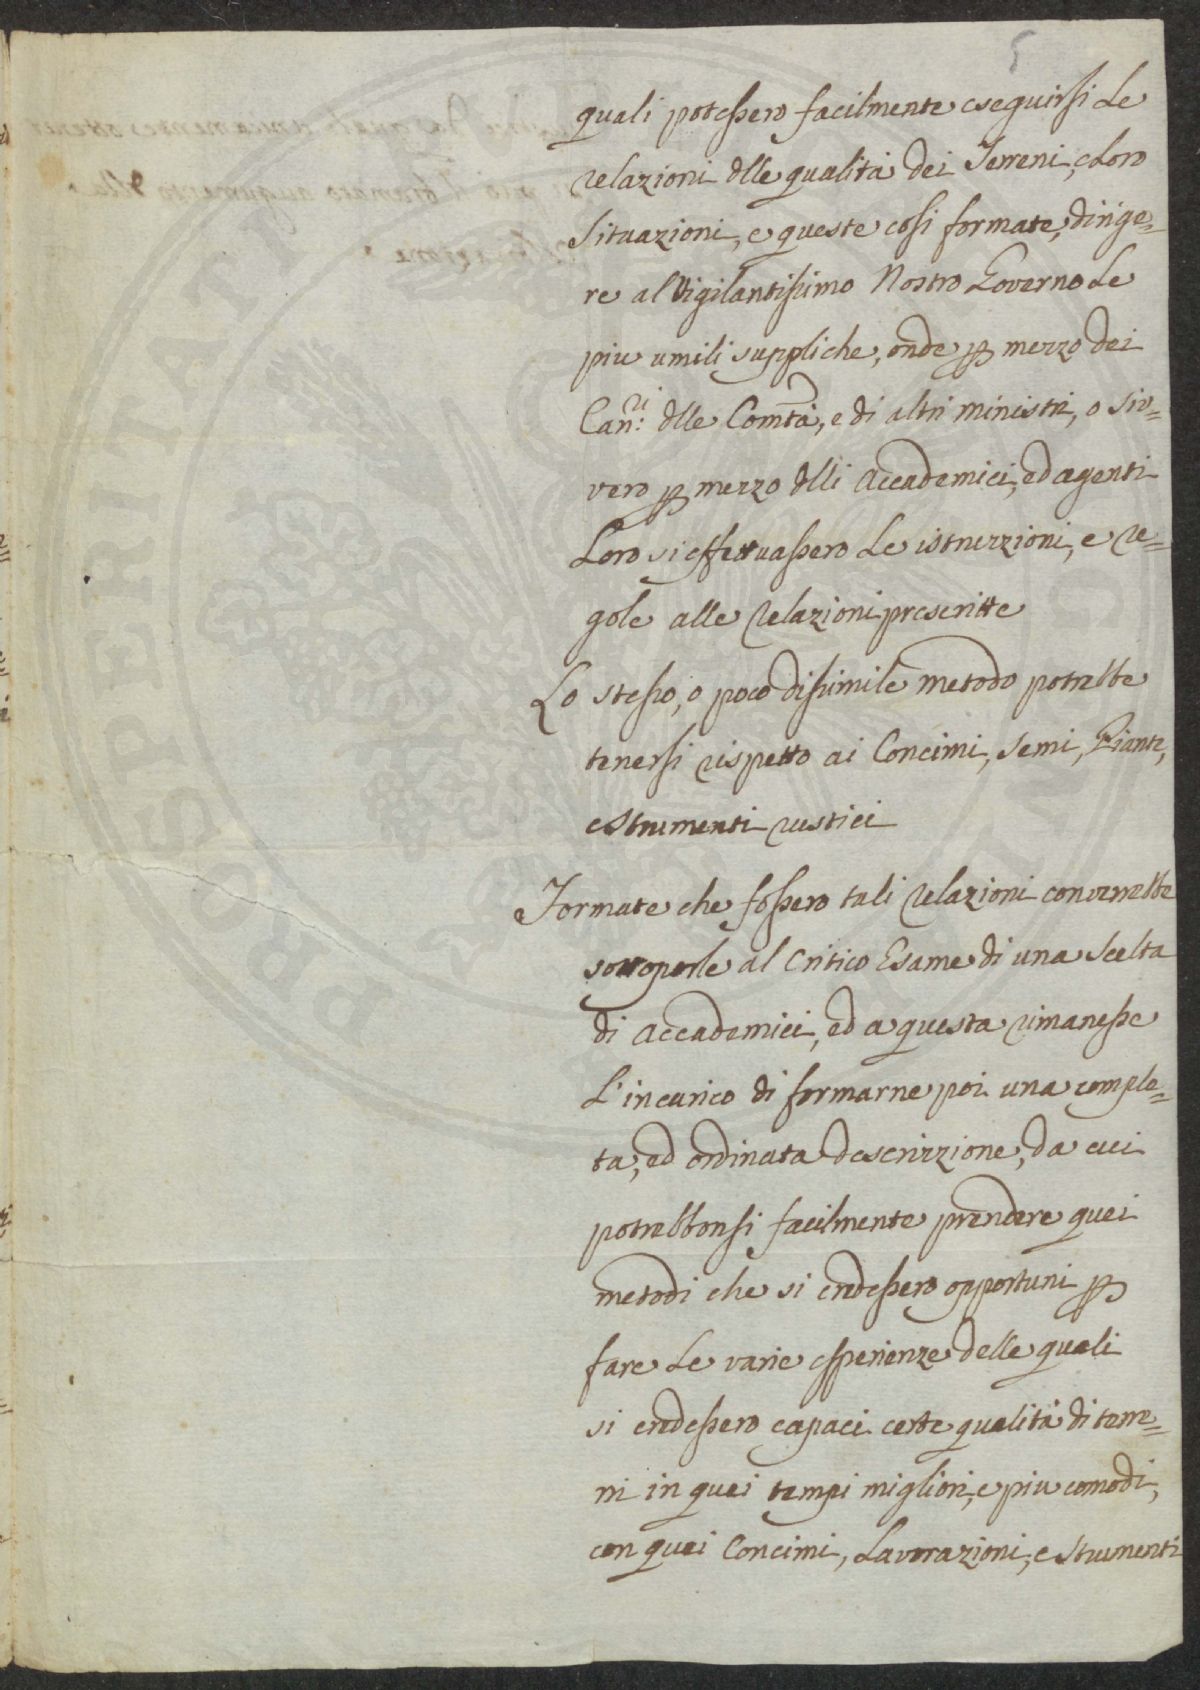 5
quali potessero facilmente eseguirsi Le
relazioni dlle qualità dei Terreni, e Loro
Situazioni, e queste così formate, dirige=
re al Vigilantissimo Nostro Governo Le
piu umili suppliche, onde p mezzo dei
Can:ri dlle Comtà, e di altri ministri, o siv=
vero p mezzo dlli Accademici, ed agenti
Loro si effettuassero Le istruzzioni, e re=
gole alle relazioni prescritte
Lo stesso, o poco dissimile metodo potrebbe
tenersi rispetto ai Concimi, Semi, Piante,
e Strumenti rustici
Formate che fossero tali relazioni converrebbe
sottoporle al Critico Esame di una Scelta
di Accademici, ed a questa rimanesse
L'incarico di formarne poi una comple=
ta, ed ordinata descrizzione, da cui
potrebbonsi facilmente prendere quei
metodi che si credessero opportuni p
fare Le varie esperienze delle quali
si credessero capaci certe qualità di terre=
ni in quei tempi migliori, e piu comodi,
con quei Concimi, Lavorazioni, e Strumenti
PROSPERITATI